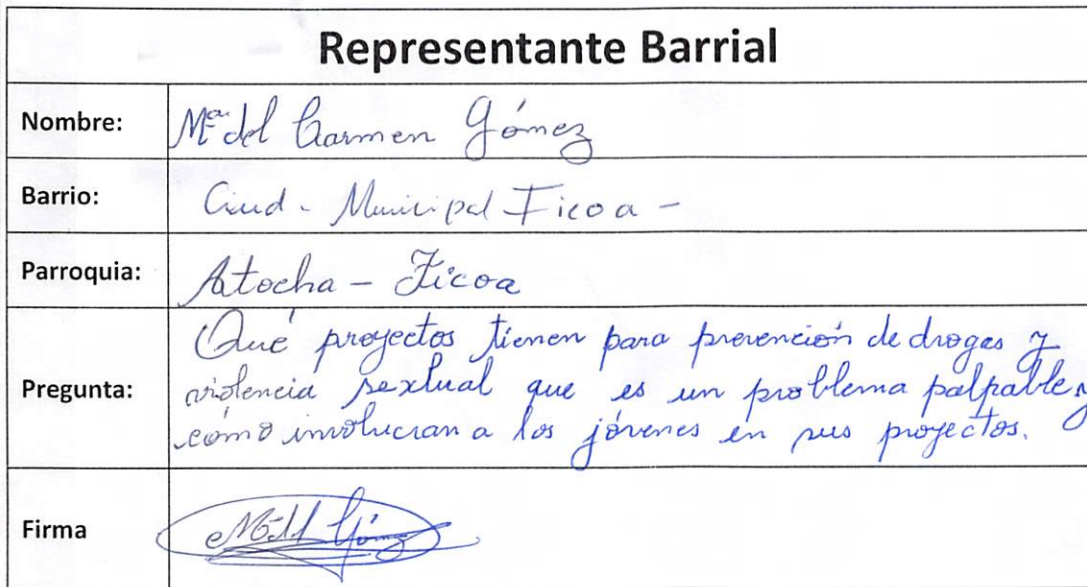 Representante Barrial
Nombre: Mª del Carmen Gómez
Barrio: Ciud - Municipal Ficoa -
Parroquia: Atocha - Ficoa
Qué proyectos tienen para prevención de drogas y
Pregunta: violencia sextual que es un problema palpable y
cómo involucran a los jóvenes en sus proyectos.
Firma Gómez